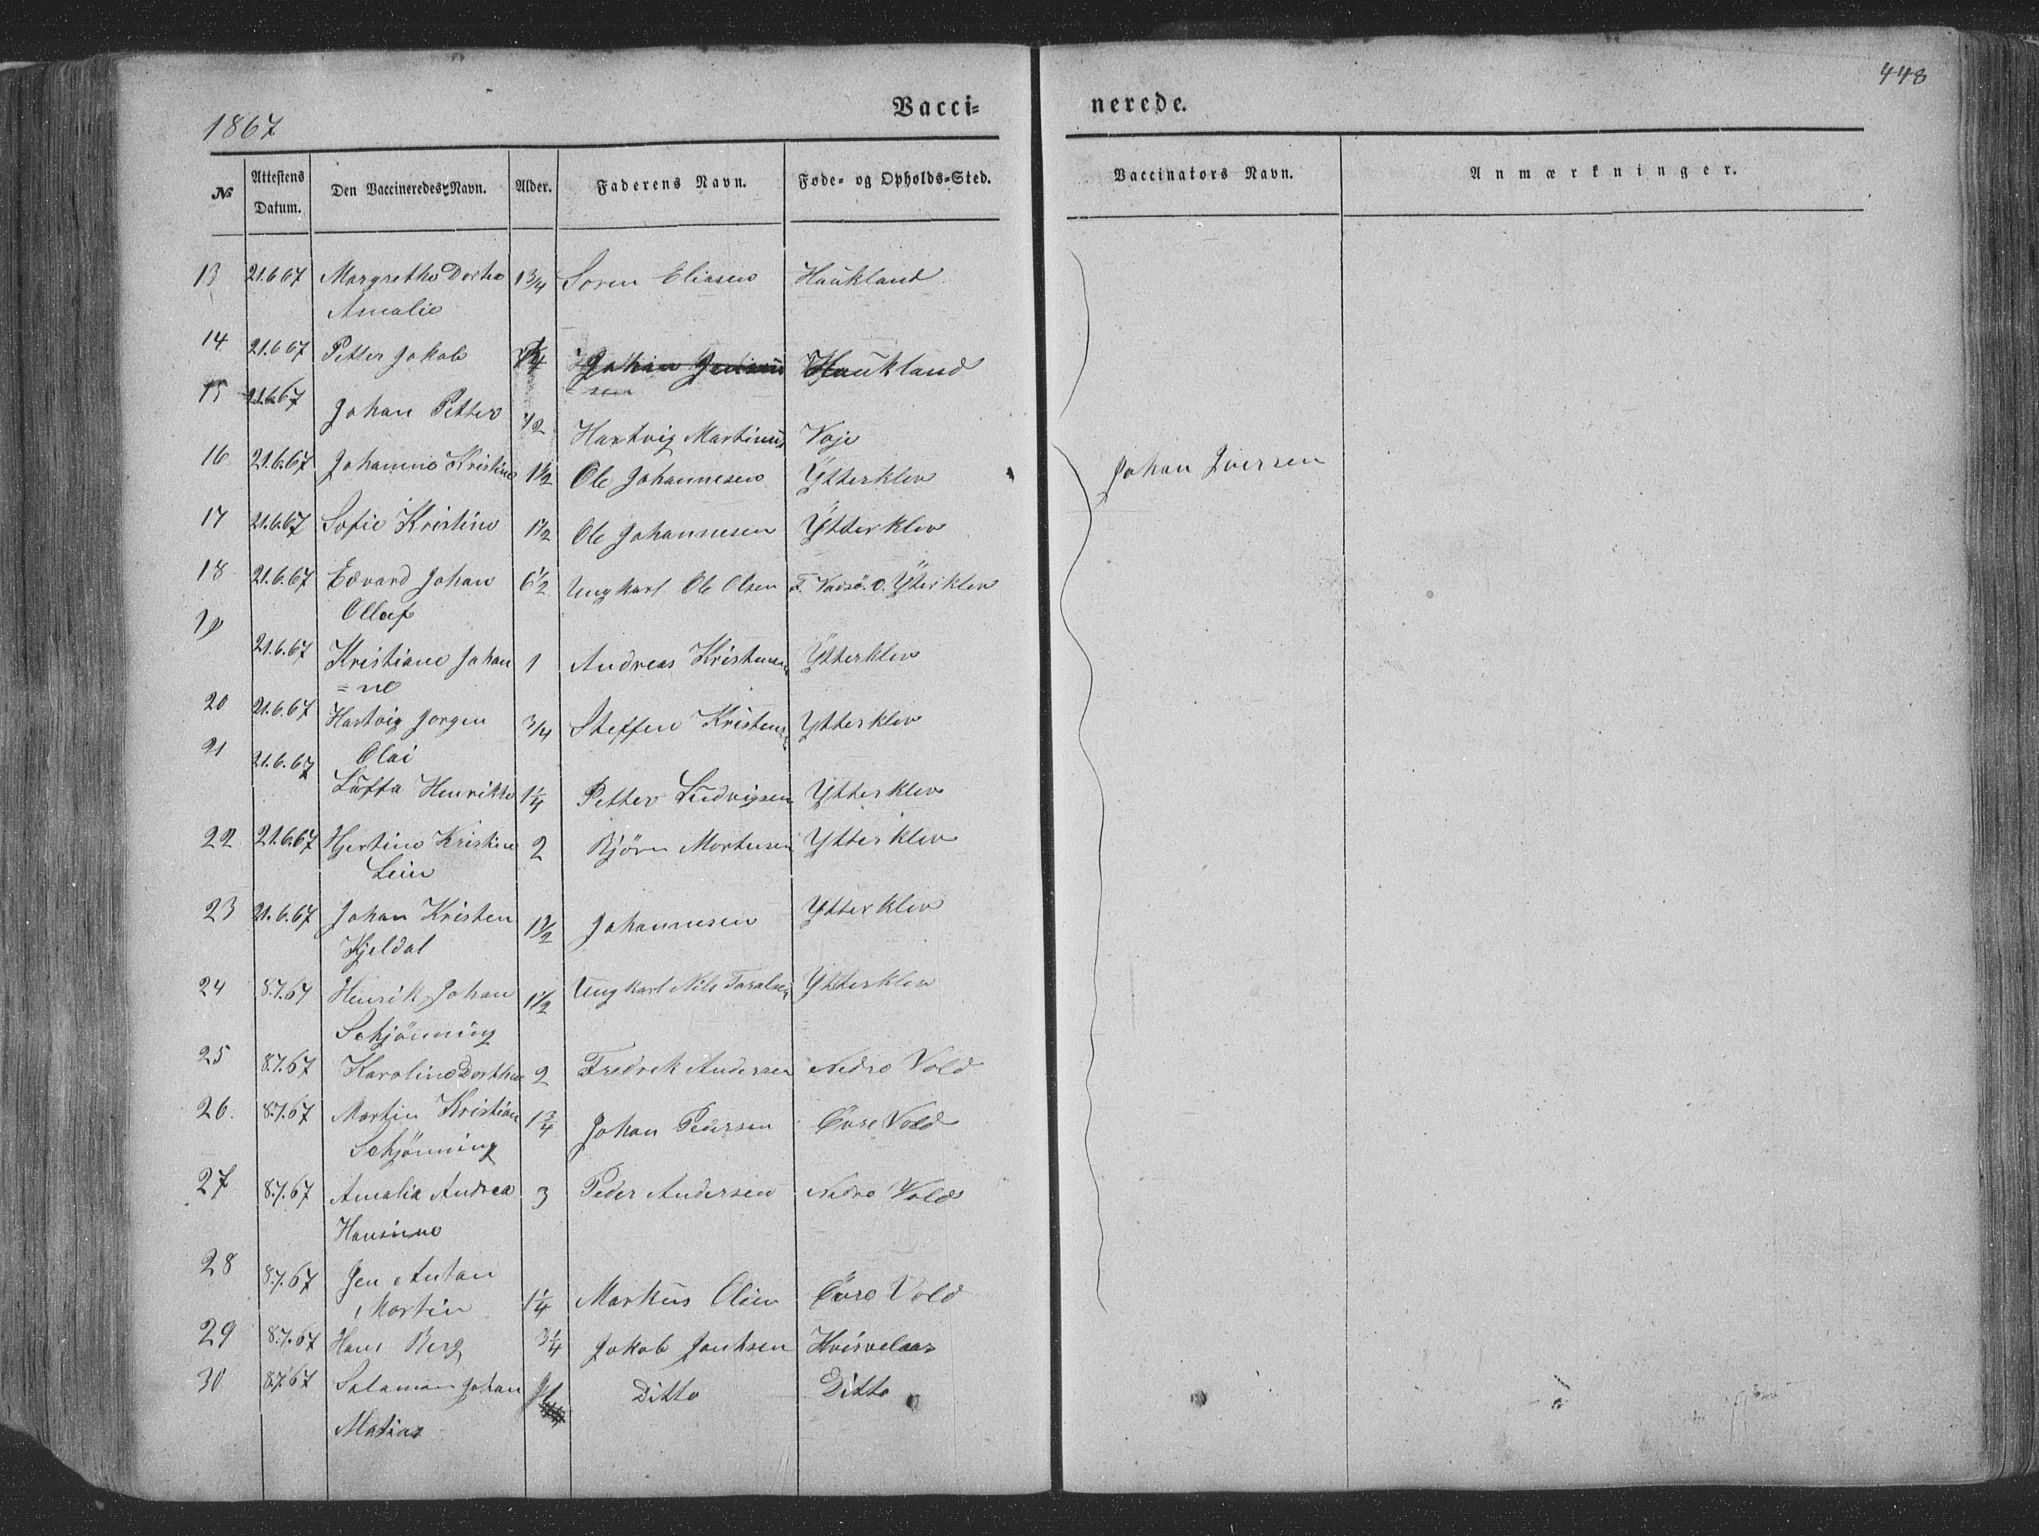 448
1867
Vacci-
nerede.
No Attestens Datum. Den Vaccineredes Navn. Alder. Faderens Navn. Føde- og Opholds-Sted. Vaccinators Navn. Anmærkninger.
13 21.6.67 Margrethe Dorthe 1 3/4 Soren Eliasen Haukland
Amalie
14 21.6.67 Petter Jakob Haukland
15 21.6.67 Johan Petter 1/2 Hartvig Martinus Voje
16 21.6.67 Johanne Kristine 1 1/2 Ole Johannesen Ytterklev Johan Iversen
17 21.6.67 Sofie Kristine 1 1/2 Ole Johannesen Ytterklev
18 21.6.67 Edvard Johan 6 1/2 Ungkarl Ole Olsen F. Vadsö. O. Ytterklev
Ollaf
19 21.6.67 Kristiane Johan 1 Andreas Kristensen Ytterklev
=ne
20 21.6.67 Hartvig Jorgen 3/4 Steffen Kristens Ytterklev
Olai
21 21.6.67 Henritte 1 1/4 Petter Ludvigsen Ytterklev
22 21.6.67 Hjertine Kristine 2 Bjørn Mortensen Ytterklev
23 21.6.67 Johan Kristen 1 1/2 Johannesen Ytterklev
Kjeldal
24 8.7.67 Henrik Johan 1 1/2 Ungkarl Nils Toralsen Ytterklev
Schjönning
25 8.7.67 Karoline Dorthea 2 Fredrek Andersen Nedre Vold
26. 8.7.67 Martin Kristian 1 3/4 Johan Pedersen Övre Vold
Schjönning
27 8.7.67 Amalia Andrea 3 Peder Andersen Nedre Vold
Hansine
28 8.7.67 Jen Antan
Martin 1 1/4 Markus Olsen Övre Vold
29 8.7.67 Hans Berg 3 1/4 Jakob Jenssen
30 8.7.67 Salamon Johan Ditto Ditto
Matias